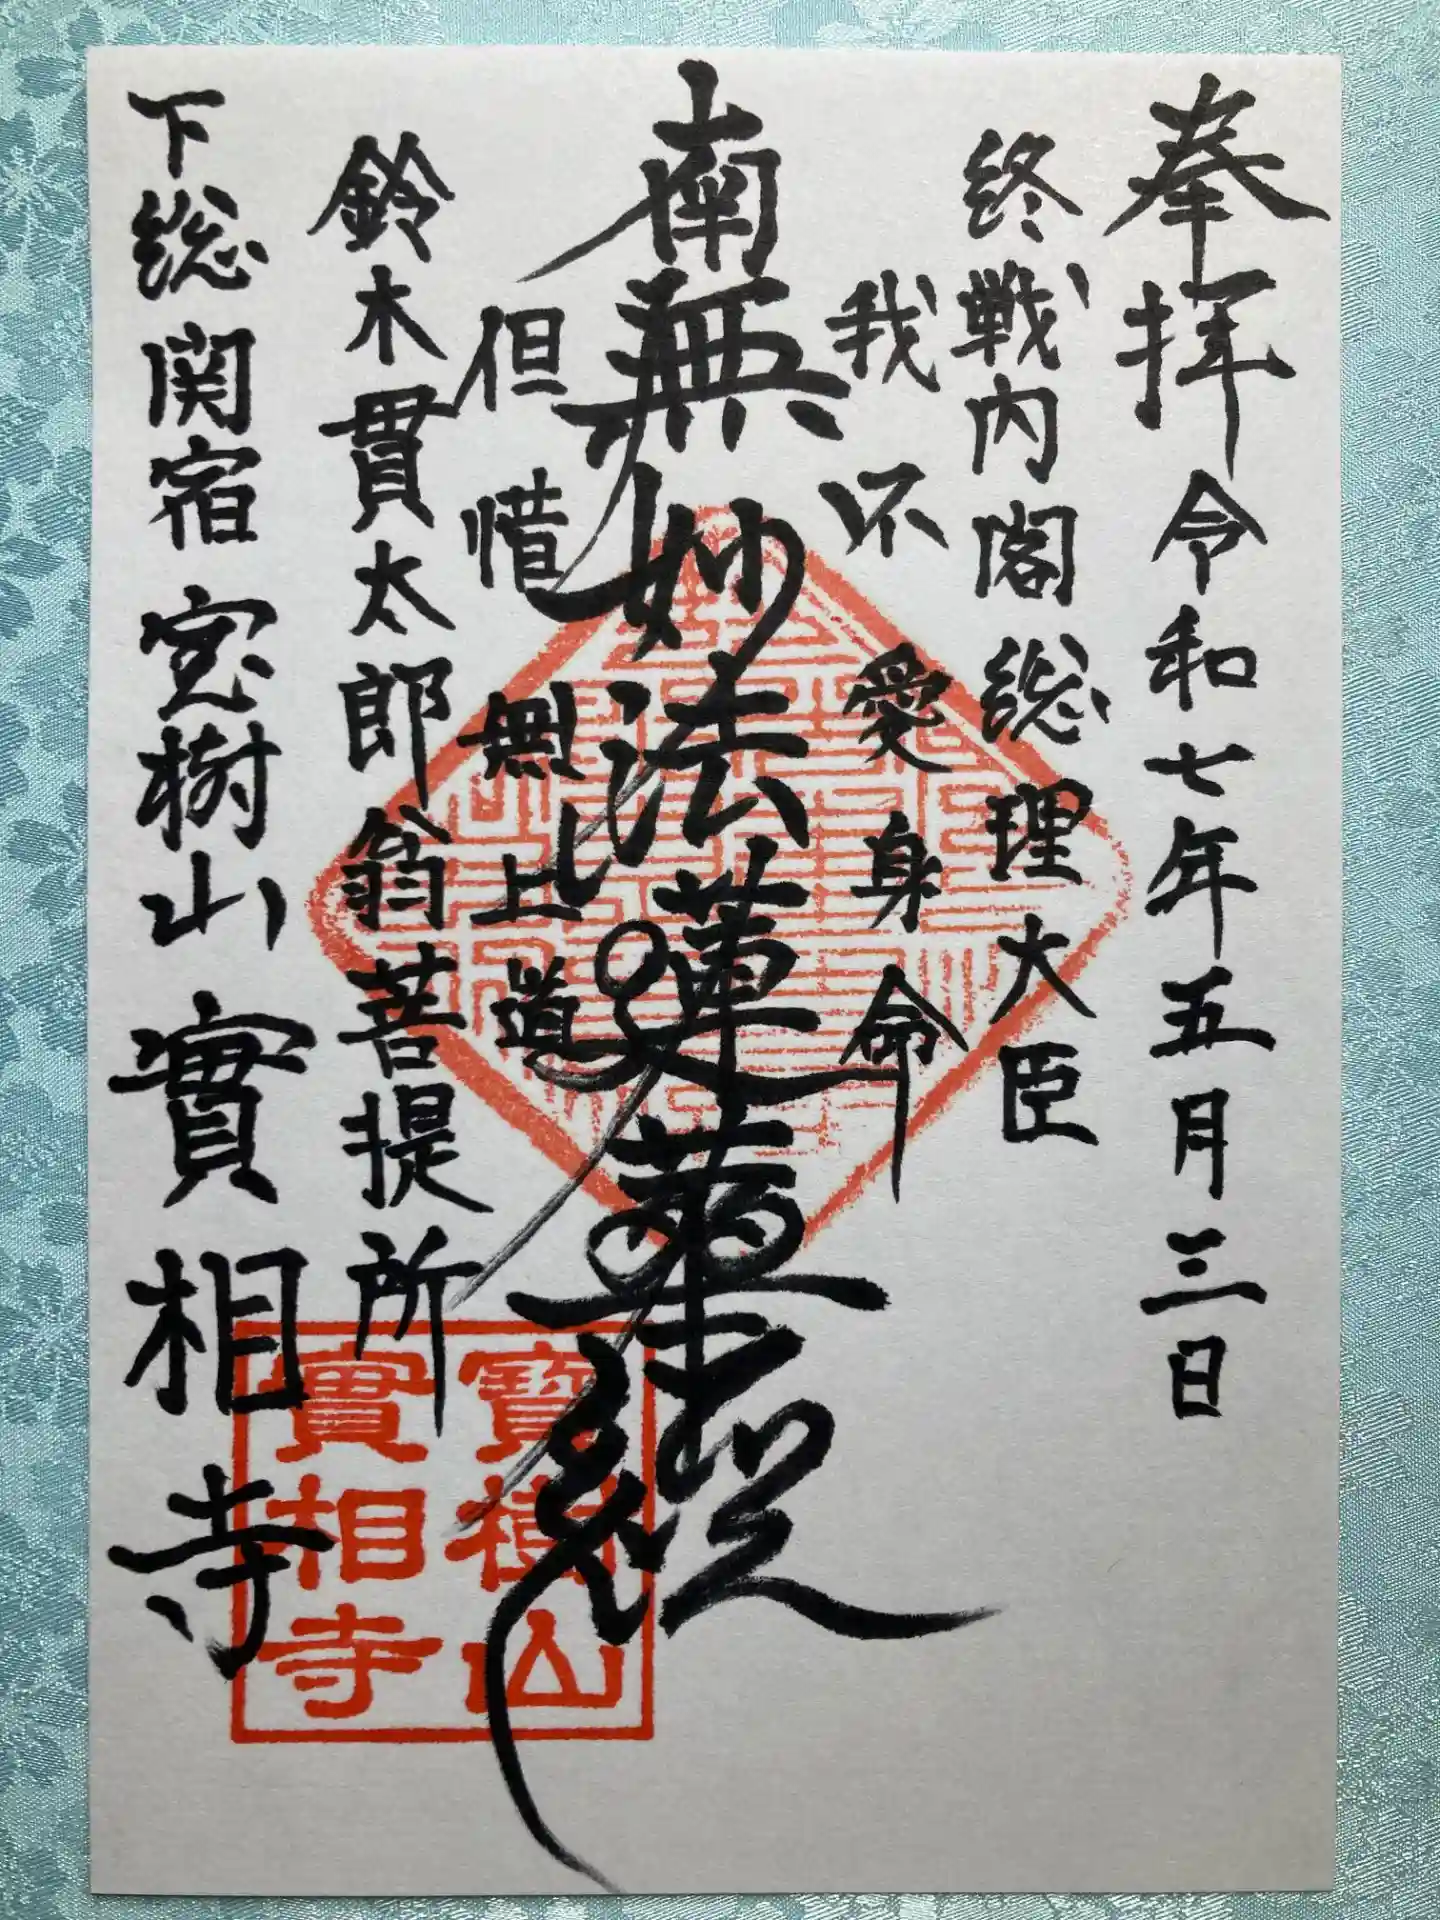 奉拝 令和七年五月三日
終戦内閣総理大臣
我不愛身命
南無妙法蓮華経
但惜無上道
鈴木貫太郎翁菩提所
下総関宿 宝樹山 實相寺
寶樹山
實相寺